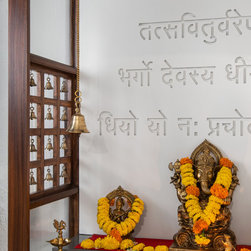 तत्सवितुर्वरे
भर्गो देवस्य धी
धियो यो नः प्रचो